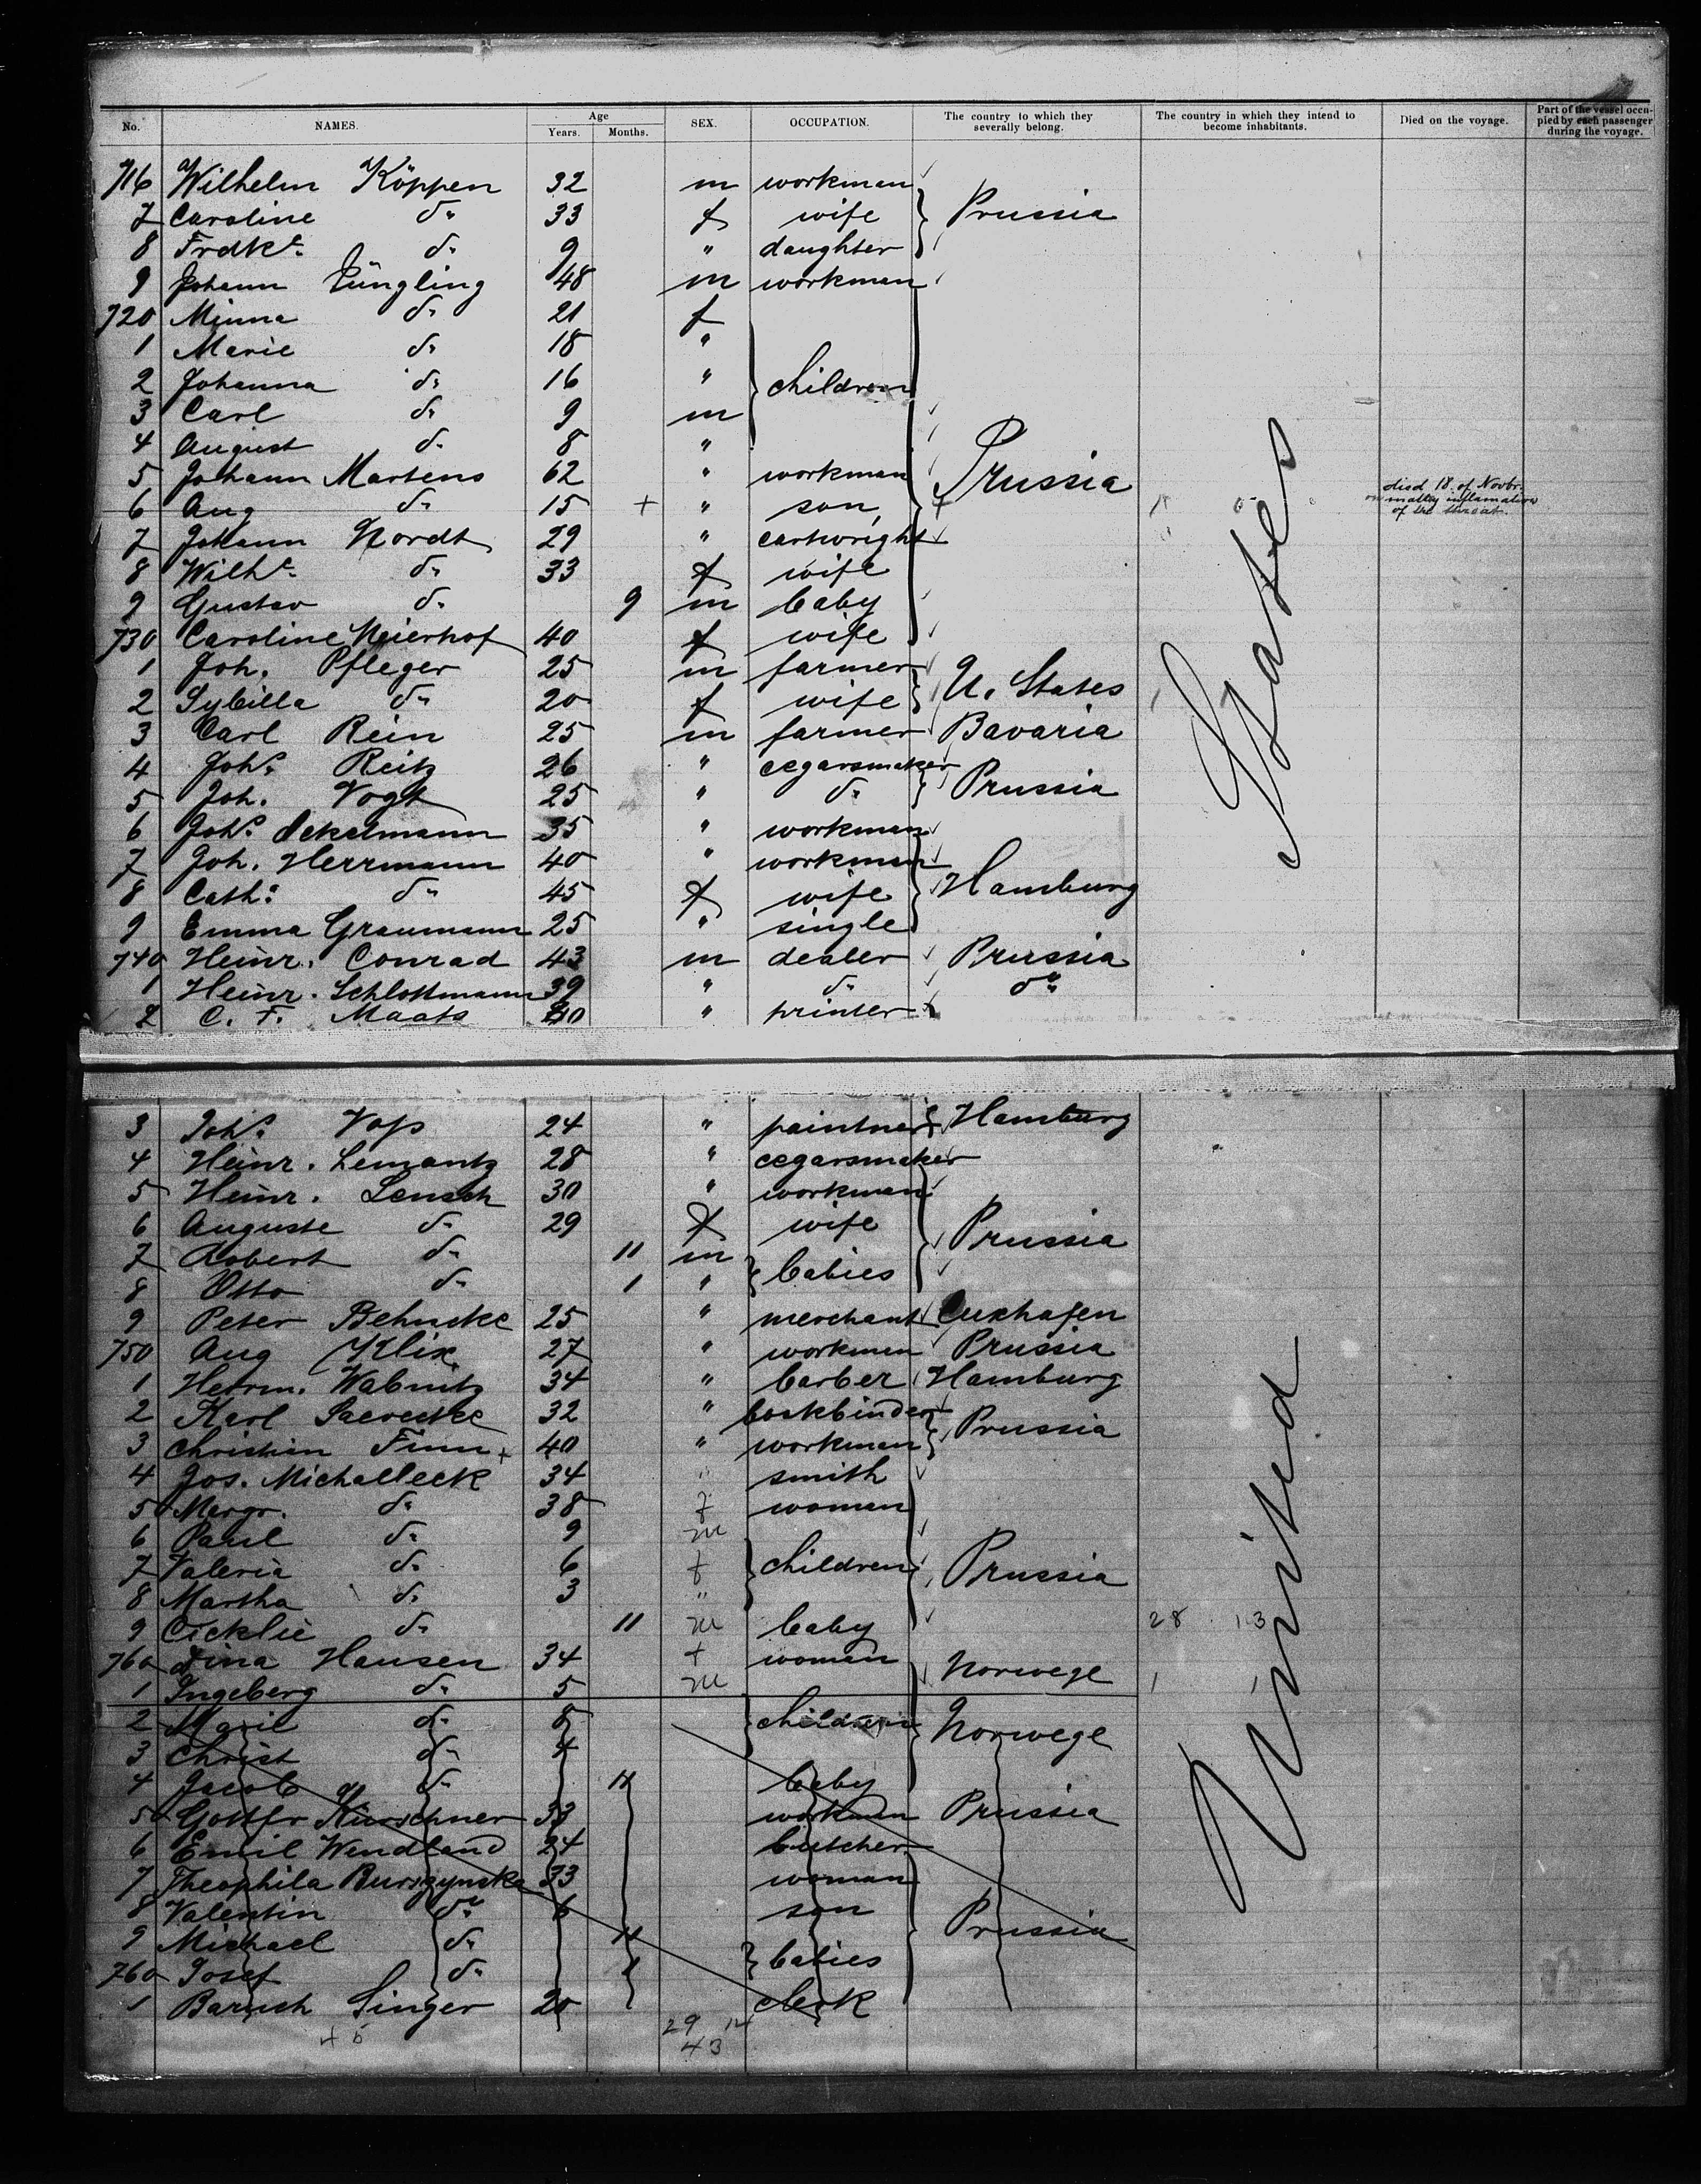 No. NAMES. Age Years. Months. SEX. OCCUPATION. The country to which they severally belong. The country in which they intend to become inhabitants. Died on the voyage. Part of the vessel occupied by each passenger during the voyage.
716 Wilhelm Köppen 32 m workman
7 Caroline do 33 f wife Prussia
8 Frdke. do 9 " daughter
9 Johann Jüngling 48 m workman
720 Minna do 21 f
1 Marie do 18 "
2 Johanna do 16 " children
3 Carl do 9 m
4 August do 8 "
5 Johann Martens 62 " workman Prussia
6 Aug do 15 + " son, + died 18 of Novbr. inflamation of the throat.
7 Johann Nordt 29 " cartwright
8 Wilhe. do 33 f wife
9 Gustav do 9 m baby
730 Caroline Meierhof 40 f wife
1 Joh. Pfleger 25 m farmer
2 Sybilla do 20 f wife U. States
3 Carl Rein 25 m farmer Bavaria
4 Johs. Reitz 26 " cegarsmaker
5 Joh. Vogt 25 " do Prussia
6 Johs. 35 " workman
7 Joh. Herrmann 40 " workman
8 Cath: do 45 f wife Hamburg
9 Emma Graumann 25 " single
740 Heinr. Conrad 43 m dealer Prussia
1 Heinr. Schlottmann 39 " do do
2 C. F. Maats 40 " printer
States
3 Johs. Voss 24 " paintner Hamburg
4 Heinr. Lemantz 28 " cegarsmaker
5 Heinr. Lensch 30 " workman
6 Auguste do 29 f wife Prussia
7 Robert do 11 m
8 Otto do 1 " babies
9 Peter Behncke 25 " merchant Cuxhafen
750 Aug Klix 27 " workmen Prussia
1 Herrm. Wabnitz 34 " barber Hamburg
2 Karl 32 " bookbinder
3 Christian Timm + 40 " workman Prussia
4 Jos. Michalleck 34 " smith
5 Margr. do 38 f woman
6 Paul do 9 m
7 Valeria do 6 f children Prussia
8 Martha do 3 "
9 Cicklie do 11 m baby 28 13
760 Dina Hansen 34 f woman
1 Ingeberg do 5 m Norwege 1 1
2 Marie do 8 children Norwege
3 Christ do 4
4 Jacob do 11 baby
5 Gottfr Kürschner 33 workman Prussia
6 Emil Wendland 24 butcher
7 Theophila Burszynska 33 woman
8 Valentin do 6 son Prussia
9 Michael do 11
760 Josef do 1 babies
1 Baruch Singer 20 clerk
United
45 29 14
43